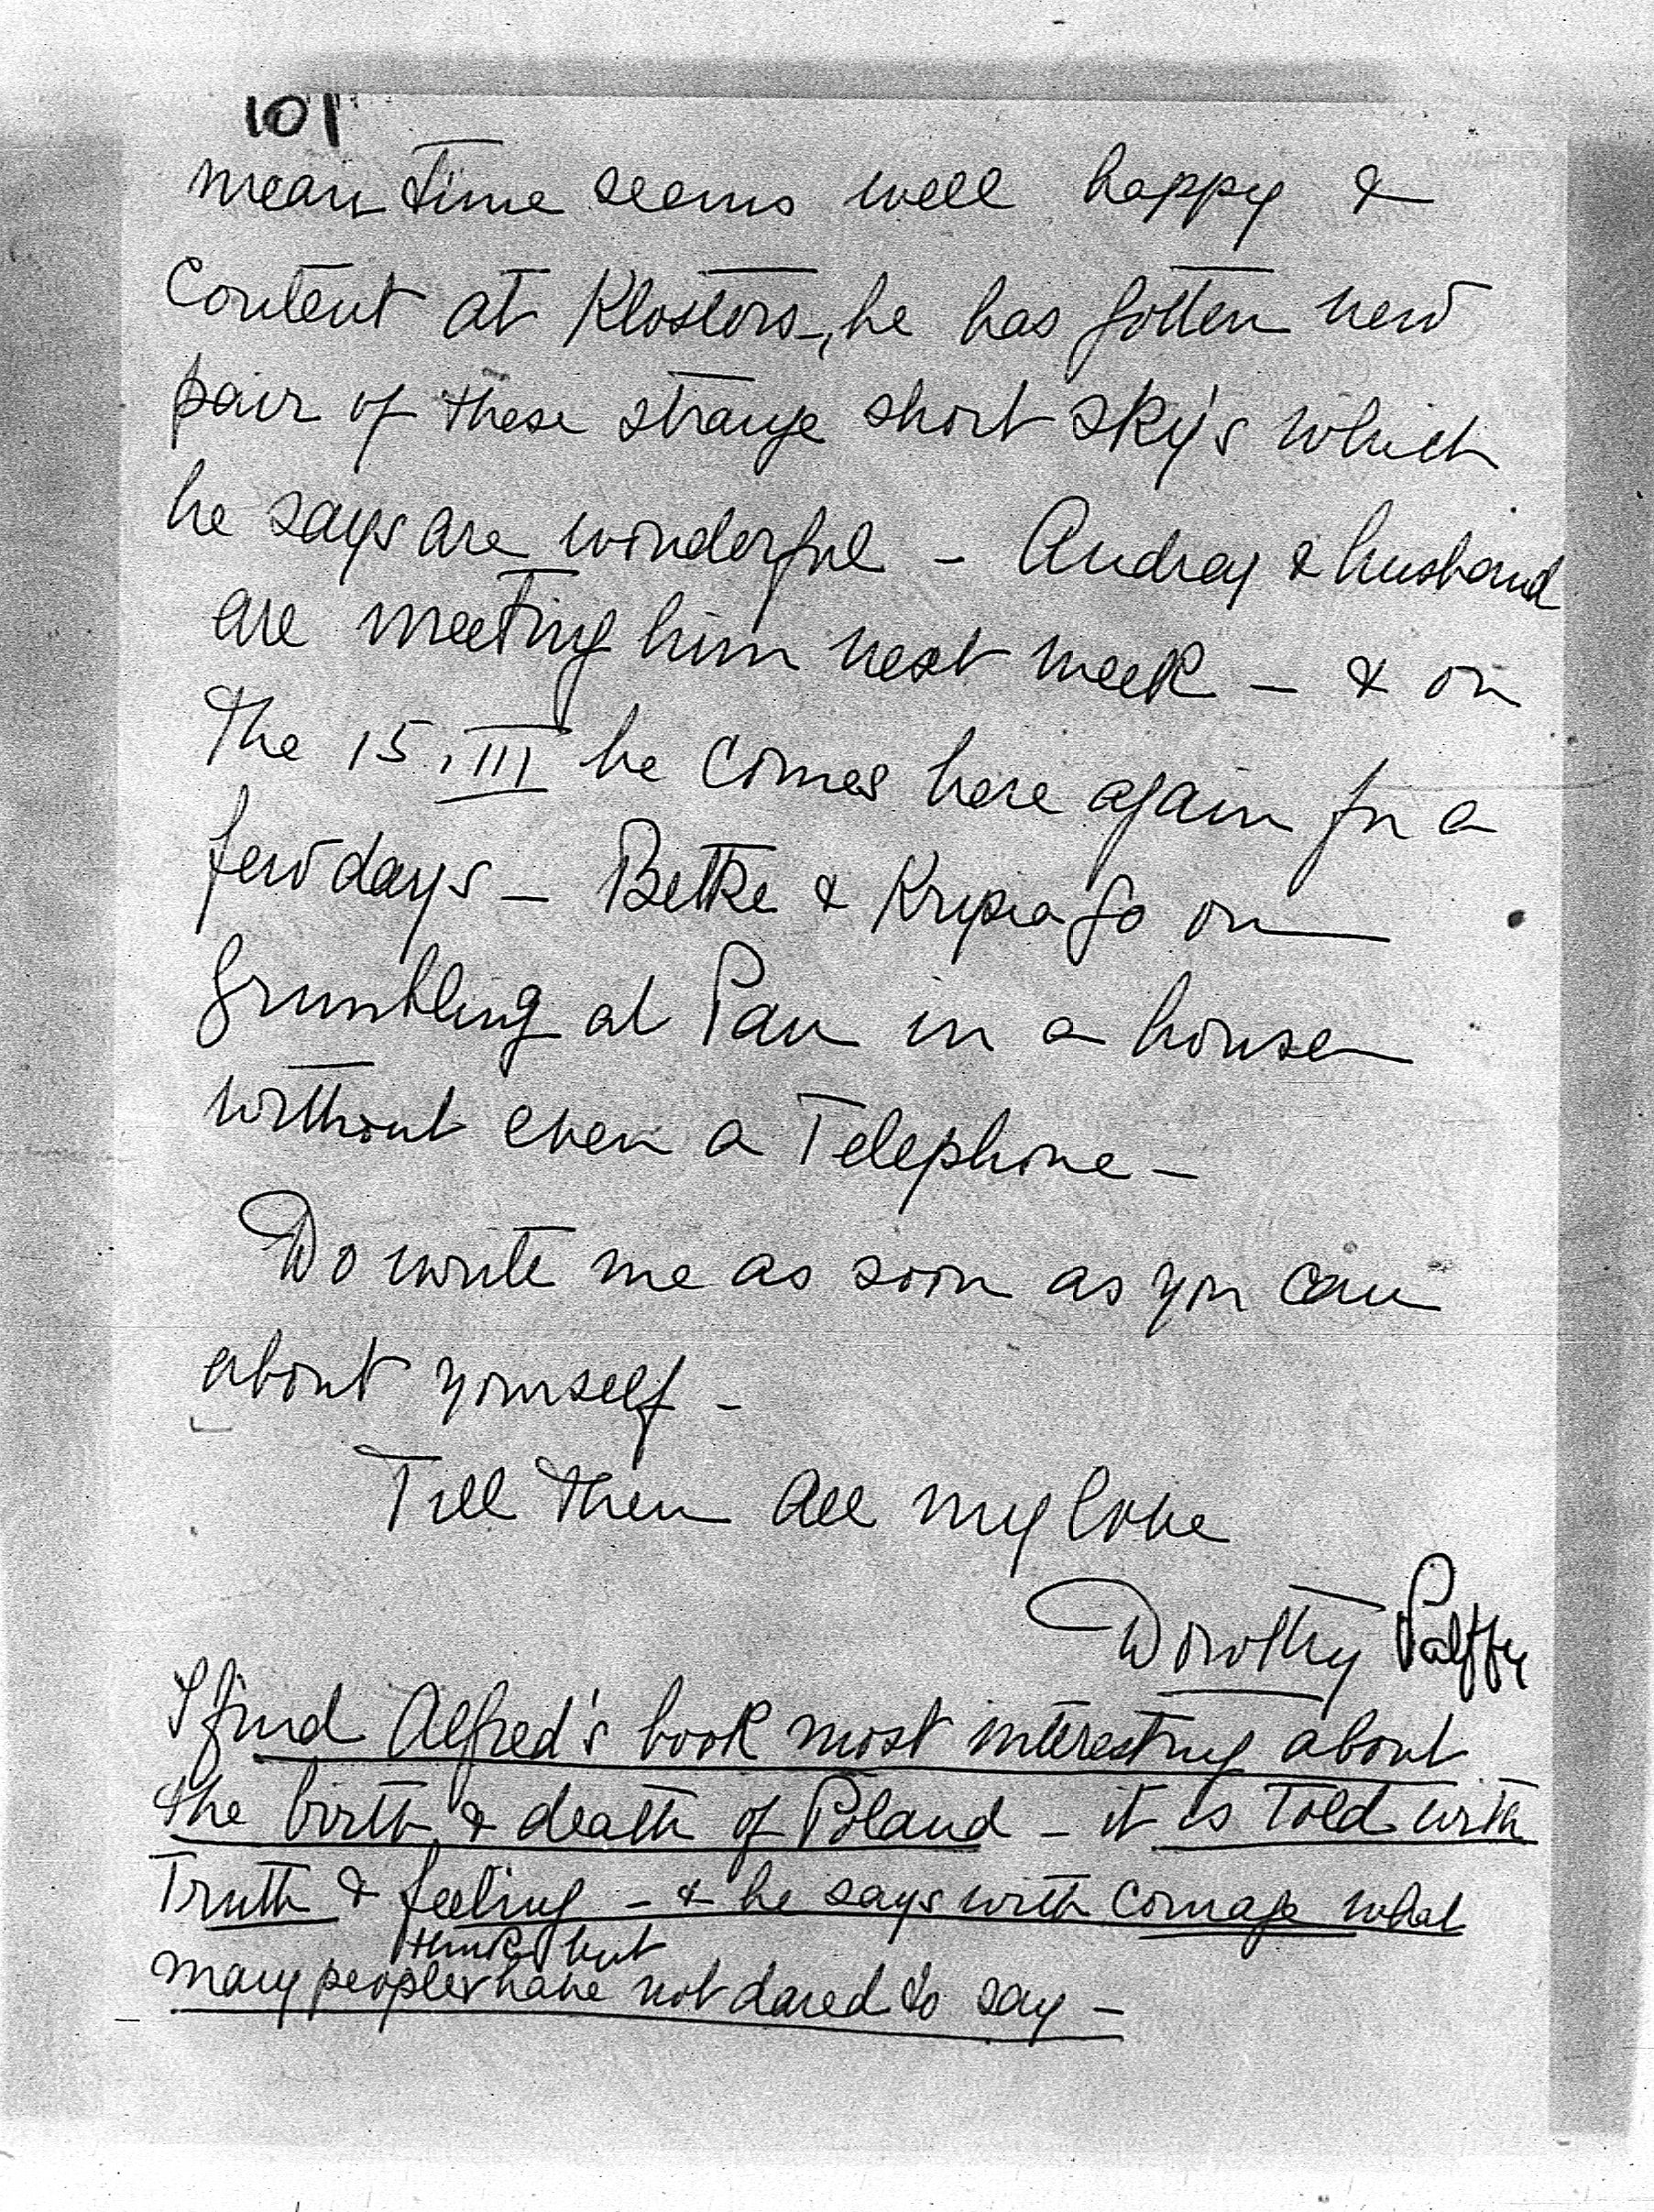 101
mean time seems well happy &
Content at Klosters, he has gotten new
pair of these strange short sky's which
he says are wonderful - Audray & husband
are meeting him next week - & on
the 15. III he comes here again for a
few days - Betke & Krysia go on
grumbling at Pau in a house
without even a Telephone -
Do write me as soon as you can
about yourself -
Till then all my love
Dorothy Palffy
I find Alfred's book most interesting about
the birth & death of Poland - it is told with
Truth & feeling - & he says with courage what
think but
many people have not dared to say -